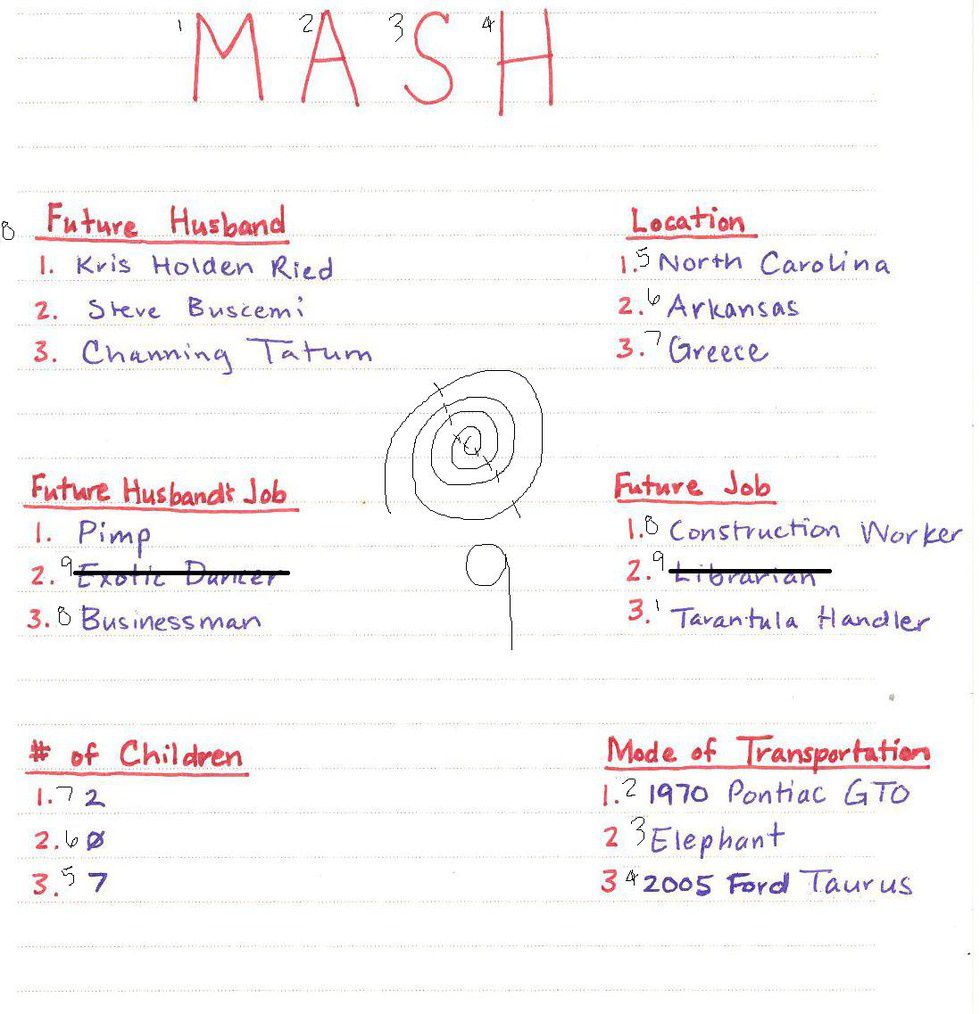 1 M 2 A 3 S 4 H
8 Future Husband
1. Kris Holden Ried
2. Steve Buscemi
3. Channing Tatum
Location
1. 5 North Carolina
2. 6 Arkansas
3. 7 Greece
Future Husband's Job
1. Pimp
2. 9 Exotic Dancer
3. 8 Businessman
9
Future Job
1. 8 Construction Worker
2. 9 Librarian
3. 1 Tarantula Handler
# of Children
1. 7 2
2. 6 0
3. 5 7
Mode of Transportation
1. 2 1970 Pontiac GTO
2 3 Elephant
3 4 2005 Ford Taurus